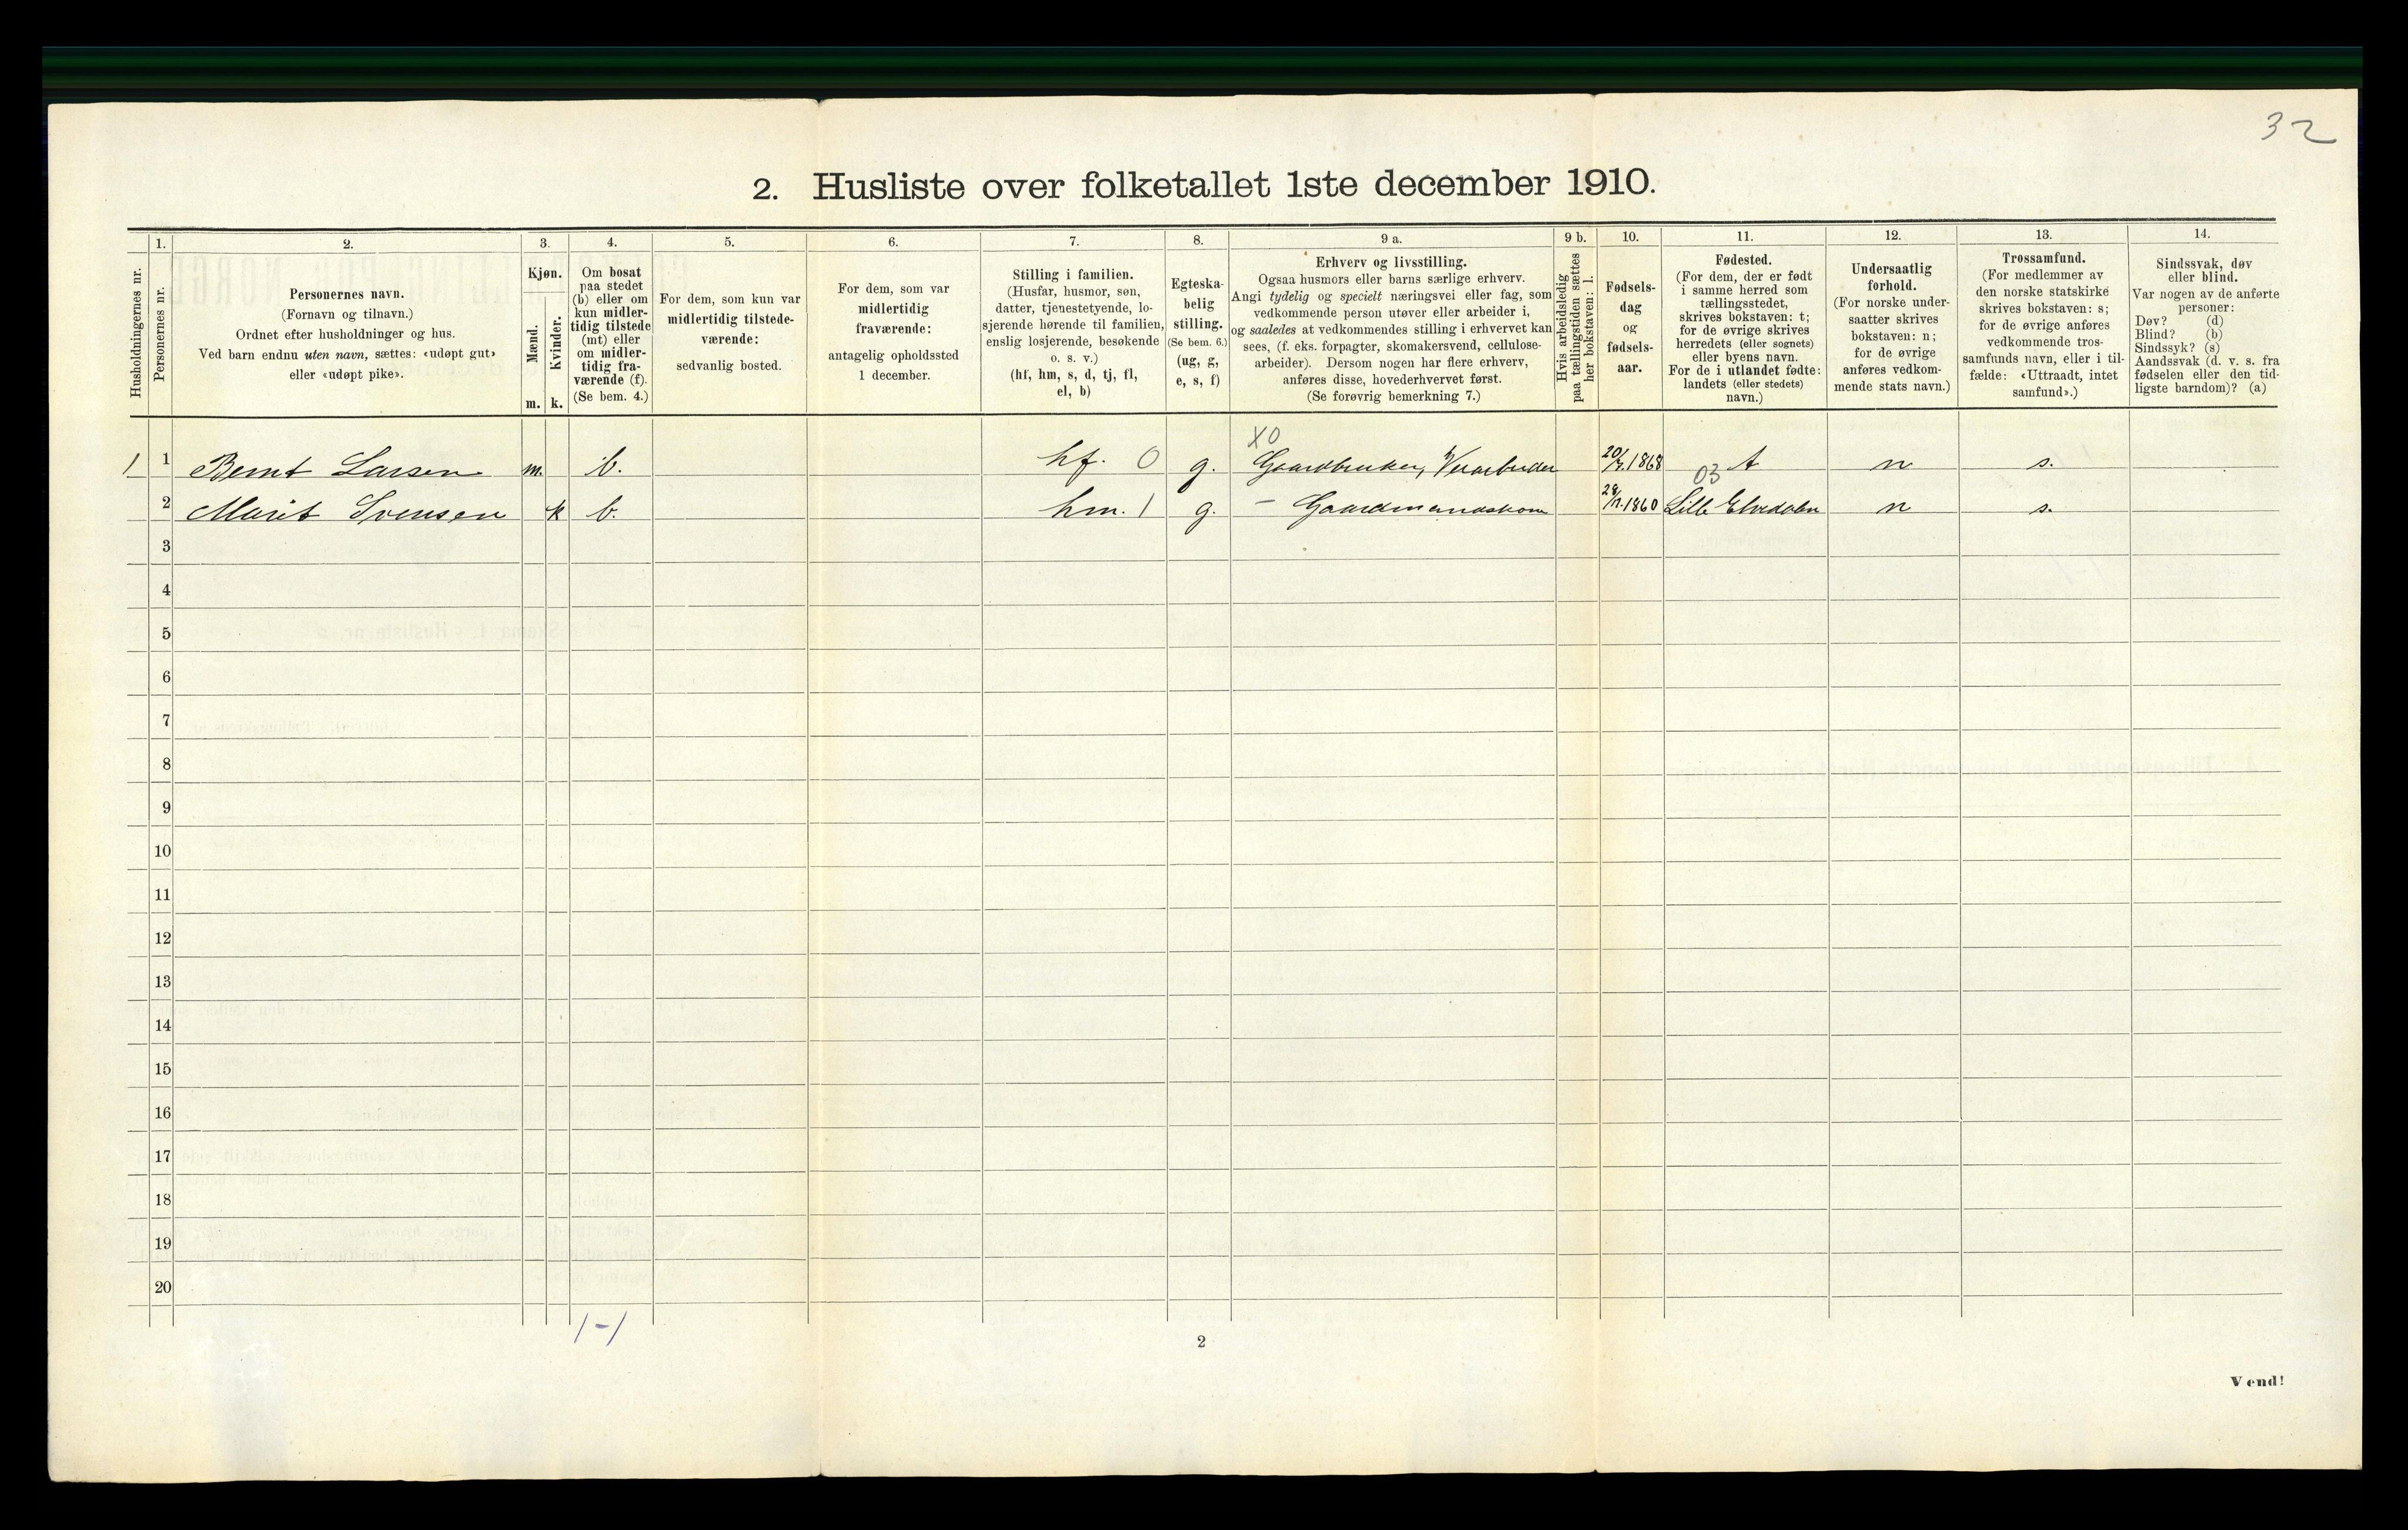 32
2. Husliste over folketallet 1ste december 1910.
Husholdningernes nr.
1.
Personernes nr.
2.
Personernes navn.
(Fornavn og tilnavn.)
Ordnet efter husholdninger og hus.
Ved barn endnu uten navn, sættes: «udøpt gut»
eller «udøpt pike».
3.
Kjøn.
Mænd.
Kvinder.
m. k.
4.
Om bosat
paa stedet
(b) eller om
kun midler-
tidig tilstede
(mt) eller
om midler-
tidig fra-
værende (f).
(Se bem. 4.)
5.
For dem, som kun var
midlertidig tilstede-
værende:
sedvanlig bosted.
6.
For dem, som var
midlertidig
fraværende:
antagelig opholdssted
1 december.
7.
Stilling i familien.
(Husfar, husmor, søn,
datter, tjenestetyende, lo-
sjerende hørende til familien,
enslig losjerende, besøkende
o. s. v.)
(hf, hm, s, d, tj, fl,
el, b)
8.
Egteska-
belig
stilling.
(Se bem. 6.)
(ug, g,
e, s, f)
9 a.
Erhverv og livsstilling.
Ogsaa husmors eller barns særlige erhverv.
Angi tydelig og specielt næringsvei eller fag, som
vedkommende person utøver eller arbeider i,
og saaledes at vedkommendes stilling i erhvervet kan
sees, (f. eks. forpagter, skomakersvend, cellulose-
arbeider). Dersom nogen har flere erhverv,
anføres disse, hovederhvervet først.
(Se forøvrig bemerkning 7.)
9 b.
Hvis arbeidsledig
paa tællingstiden sættes
her bokstaven: l.
10.
Fødsels-
dag
og
fødsels-
aar.
11.
Fødested.
(For dem, der er født
i samme herred som
tællingsstedet,
skrives bokstaven: t;
for de øvrige skrives
herredets (eller sognets)
eller byens navn.
For de i utlandet fødte:
landets (eller stedets)
navn.)
12.
Undersaatlig
forhold.
(For norske under-
saatter skrives
bokstaven: n;
for de øvrige
anføres vedkom-
mende stats navn.)
13.
Trossamfund.
(For medlemmer av
den norske statskirke
skrives bokstaven: s;
for de øvrige anføres
vedkommende tros-
samfunds navn, eller i til-
fælde: «Uttraadt, intet
samfund».)
14.
Sindssvak, døv
eller blind.
Var nogen av de anførte
personer:
Døv? (d)
Blind? (b)
Sindssyk? (s)
Aandssvak (d. v. s. fra
fødselen eller den tid-
ligste barndom)? (a)
X0
1 1 Bernt Larsen m. b. hf. 0 g. Gaardbruker, 20/7.1868 t n s.
03
2 Marit Svensen k b. hm. 1 g. - Gaardmandskone 1860 Lille Elvedalen n s.
3
4
5
6
7
8
9
10
11
12
13
14
15
16
17
18
19
20
1-1
2
Vend!